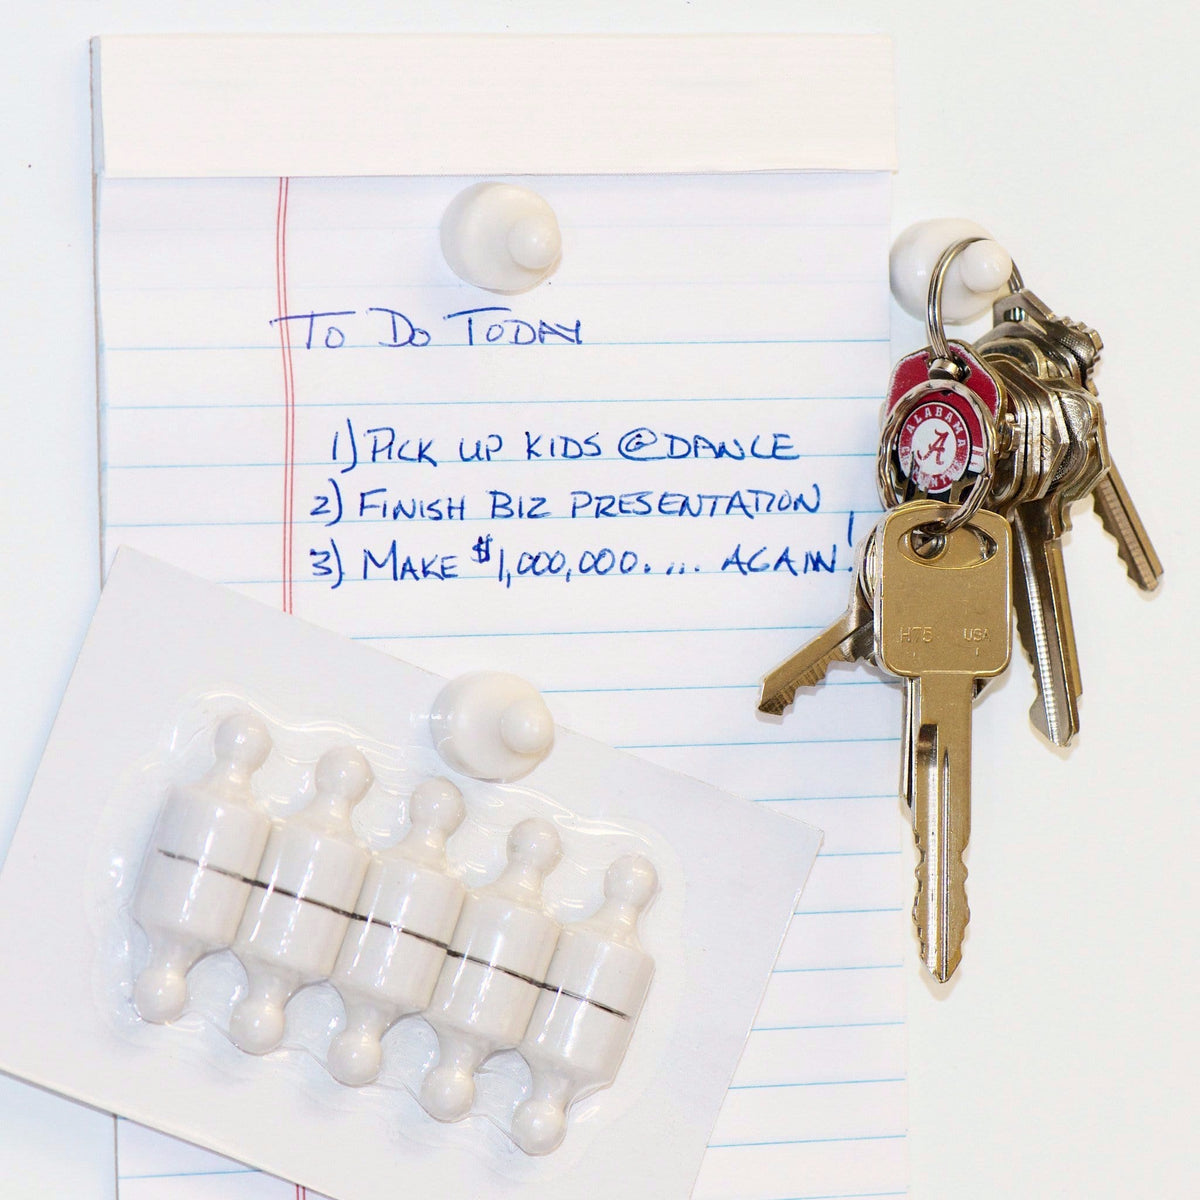 TO DO TODAY
1) PICK UP KIDS @ DANCE
2) FINISH BIZ PRESENTATION
3) MAKE $1,000,000. ... AGAIN!
ALABAMA
A
H75 USA